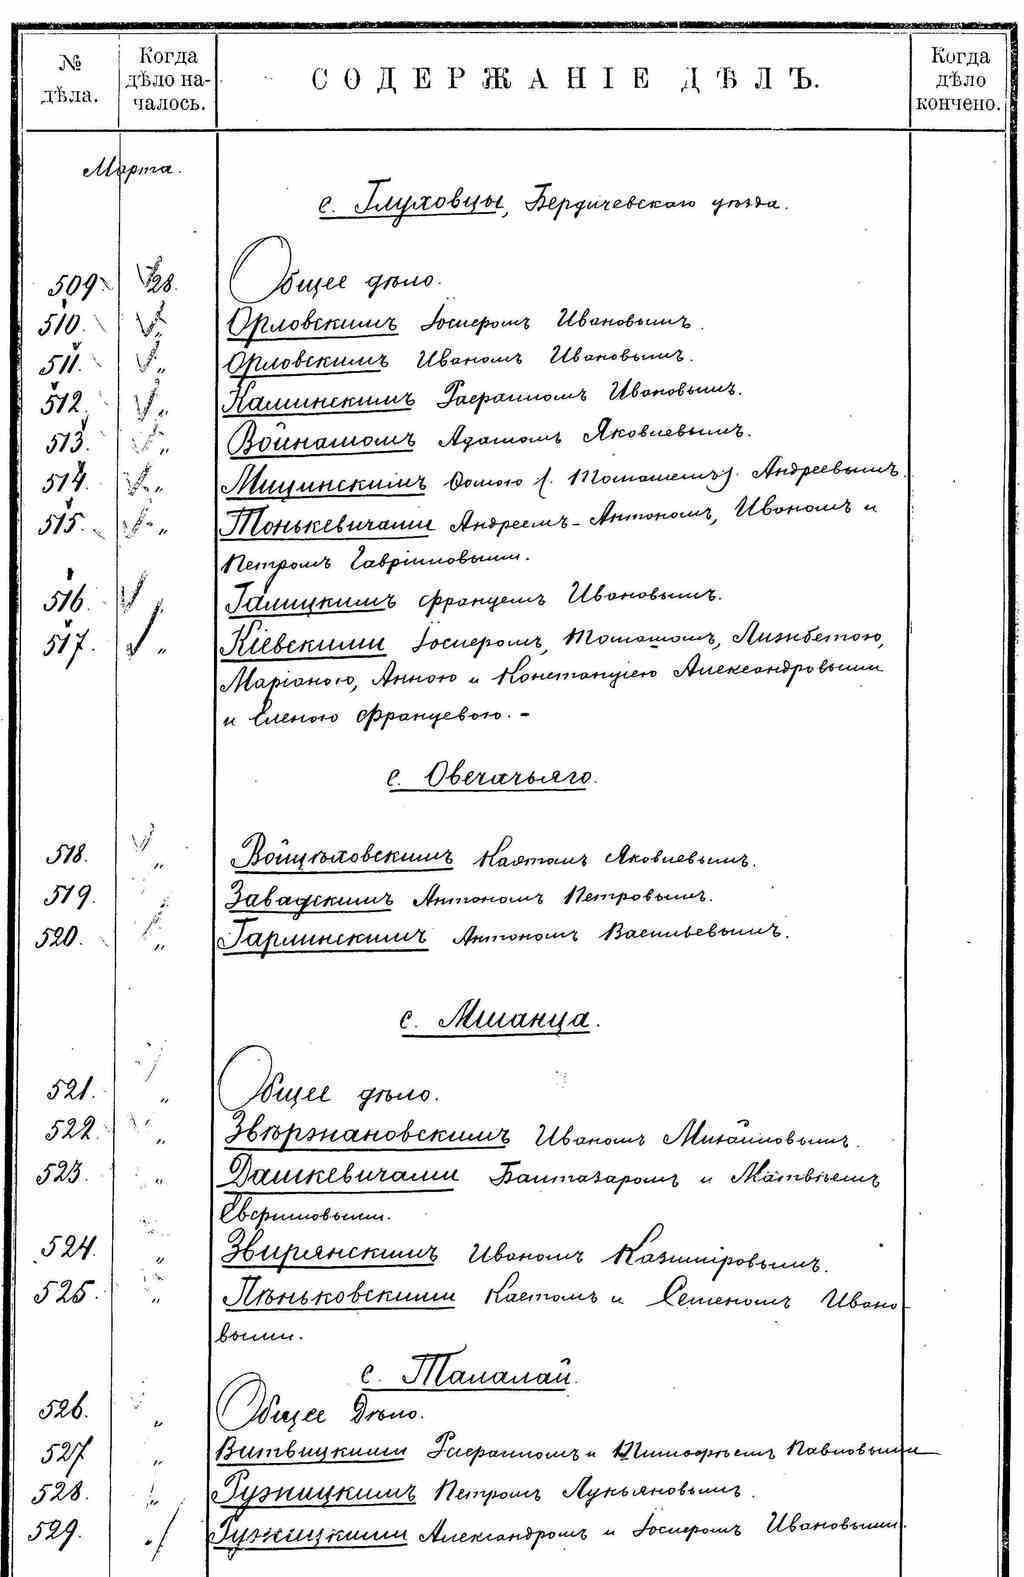 № дѣла. Когда дѣло началось. СОДЕРЖАНІЕ ДѢЛЪ. Когда дѣло кончено.
Марта.
с. Глуховцы, Бердичевскаго уѣзда.
509. 28. Общее дѣло.
510. „ Орловскимъ Іосифомъ Ивановымъ.
511. „ Орловскимъ Иваномъ Ивановымъ.
512. „ Каминскимъ Рафаиломъ Ивановымъ.
513. „ Войнашомъ Адамомъ Яковлевымъ.
514. „ Мицинскимъ Фомою (Томашемъ) Андреевымъ
515. „ Тонькевичами Андреемъ-Антономъ, Иваномъ и
Петромъ Гавріиловыми.
516. „ Галицкимъ Францемъ Ивановымъ.
517. „ Кіевскими Іосифомъ, Томашомъ, Лизбетою,
Маріаною, Анною и Констанціею Александровыми
и Еленою Францевою. -
с. Овечачьяго.
518. „ Войцѣховскимъ Каетомъ Яковлевымъ.
519. „ Завадскимъ Антономъ Петровымъ.
520. „ Гарлинскимъ Антономъ Васильевымъ.
с. Мшанца.
521. „ Общее дѣло.
522. „ Звѣрзнановскимъ Иваномъ Михайловымъ.
523. „ Дашкевичами Балтазаромъ и Матвѣемъ
524. „ Звирянскимъ Иваномъ Казиміровымъ.
525. „ Пѣньковскими Каетомъ и Семеномъ Ивано-
выми.
с. Талалай.
526. „ Общее Дѣло.
527. „ Витвицкими Рафаиломъ и Тимофѣемъ Павловыми
528. „ Ружицкимъ Петромъ Лукьяновымъ.
529. „ Ружицкими Александромъ и Іосифомъ Ивановыми.